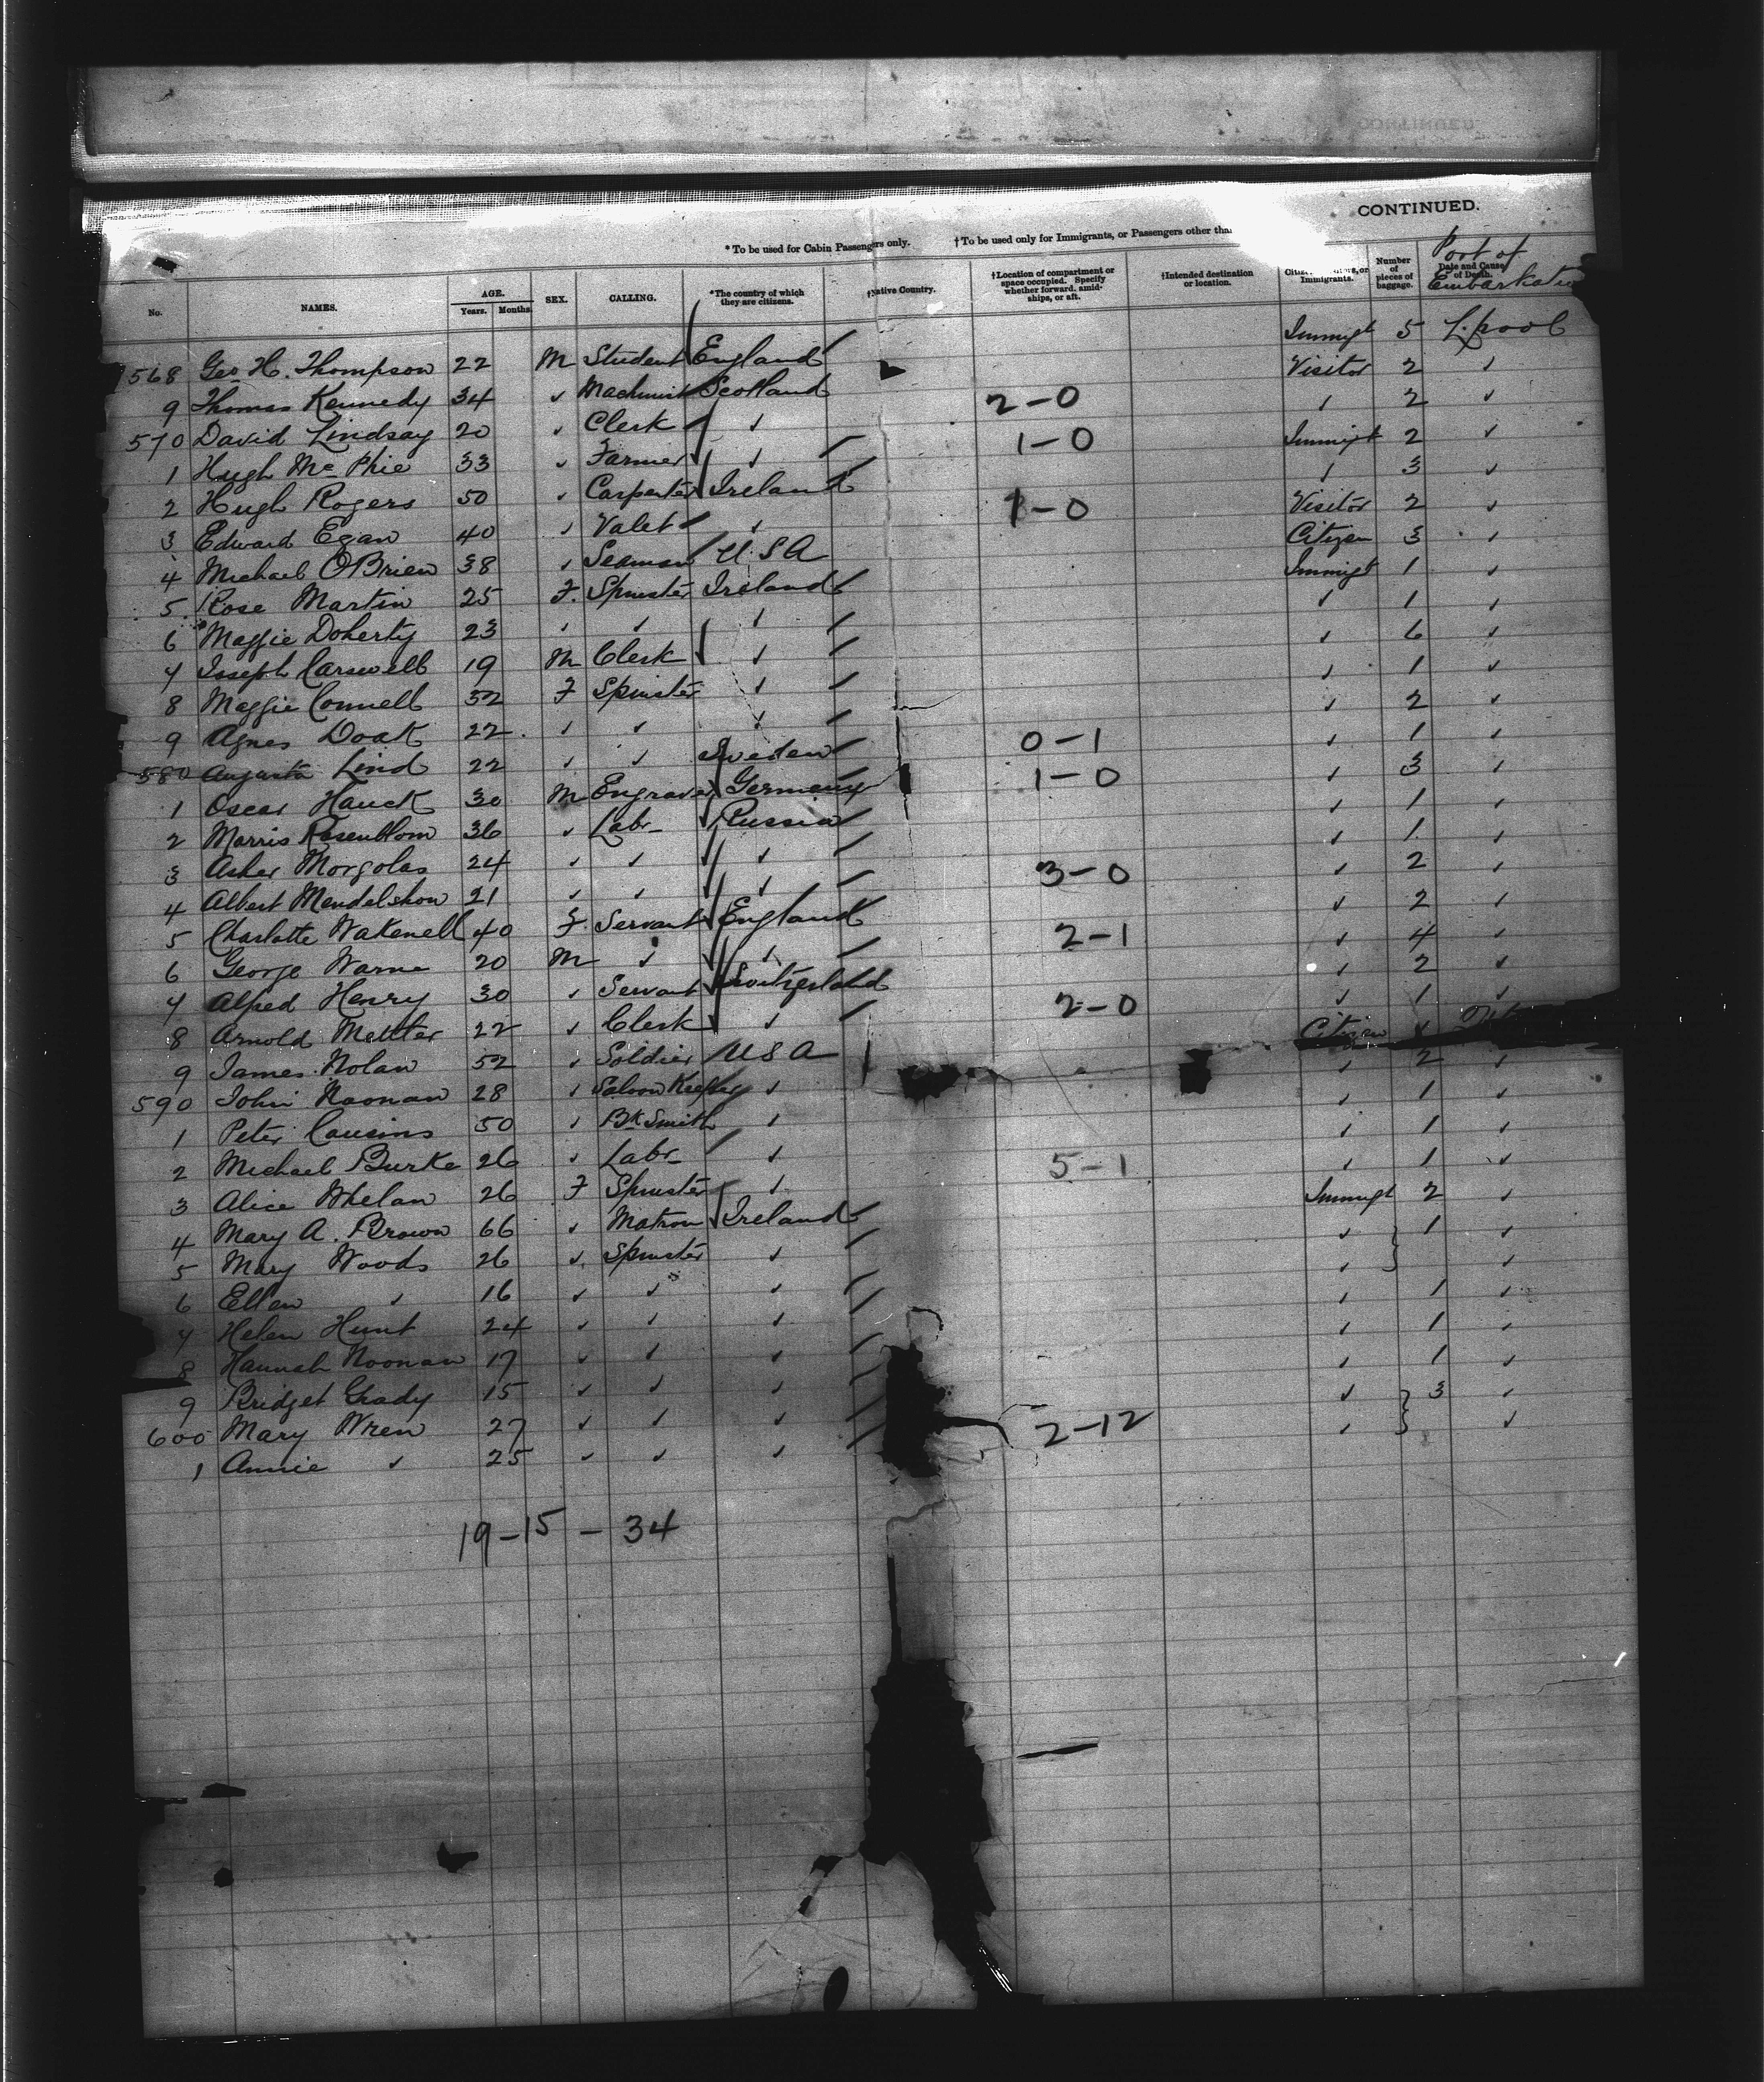 CONTINUED.
* To be used for Cabin Passengers only. † To be used only for Immigrants, or Passengers other than
No. NAMES. AGE. Years. Months. SEX. CALLING. *The country of which they are citizens. †Native Country. †Location of compartment or space occupied. Specify whether forward, amidships, or aft. †Intended destination or location. Immigrants. Number of pieces of baggage. Date and Cause of Death. Port of Embarkation
568 Geo H. Thompson 22 M Student England Immigt 5 L.pool
9 Thomas Kennedy 34 ✓ Machinist Scotland 2-0 Visitor 2 ✓
570 David Lindsay 20 ✓ Clerk ✓ 1-0 ✓ 2 ✓
1 Hugh McPhie 33 ✓ Farmer ✓ Immigt 2 ✓
2 Hugh Rogers 50 ✓ Carpenter Ireland 1-0 ✓ 3 ✓
3 Edward Egan 40 ✓ Valet ✓ Visitor 2 ✓
4 Michael O'Brien 38 ✓ Seaman U.S.A Citizen 3 ✓
5 Rose Martin 25 F. Spinster Ireland Immigt 1 ✓
6 Maggie Doherty 23 ✓ ✓ ✓ ✓ 1 ✓
7 Joseph Carswell 19 M Clerk ✓ ✓ 6 ✓
8 Maggie Connell 32 F Spinster ✓ ✓ 1 ✓
9 Agnes Doak 22 ✓ ✓ ✓ 0-1 ✓ 2 ✓
580 Augusta Lind 22 ✓ ✓ Sweden 1-0 ✓ 1 ✓
1 Oscar Hauck 30 M Engraver Germany ✓ 3 ✓
2 Morris Rosenblom 36 ✓ Labr Russia ✓ 1 ✓
3 Asher Morgolas 24 ✓ ✓ ✓ 3-0 ✓ 1 ✓
4 Albert Mendelshon 21 ✓ ✓ ✓ ✓ 2 ✓
5 Charlotte Wakenell 40 F. Servant England 2-1 ✓ 2 ✓
6 George Warne 20 M ✓ ✓ ✓ 4 ✓
7 Alfred Henry 30 ✓ Servant Switzerland 2-0 ✓ 2 ✓
8 Arnold Mettler 22 ✓ Clerk ✓ ✓ 1 ✓
9 James Nolan 52 ✓ Soldier U S A Citizen
590 John Noonan 28 ✓ Saloon Keeper ✓ ✓ 2 ✓
1 Peter Cousins 50 ✓ Bk Smith ✓ ✓ 1 ✓
2 Michael Burke 26 ✓ Labr ✓ 5-1 ✓ 1 ✓
3 Alice Whelan 26 F Spinster ✓ ✓ 1 ✓
4 Mary A. Brown 66 ✓ Matron Ireland Immigt 2 ✓
5 Mary Woods 26 ✓ Spinster ✓ ✓ 1 ✓
6 Ellen ✓ 16 ✓ ✓ ✓ ✓ ✓
7 Helen Hunt 24 ✓ ✓ ✓ ✓ 1 ✓
8 Hannah Noonan 17 ✓ ✓ ✓ ✓ 1 ✓
9 Bridget Grady 15 ✓ ✓ ✓ ✓ 1 ✓
600 Mary Wren 27 ✓ ✓ ✓ 2-12 ✓ 3 ✓
1 Annie ✓ 25 ✓ ✓ ✓ ✓ ✓
19-15 - 34